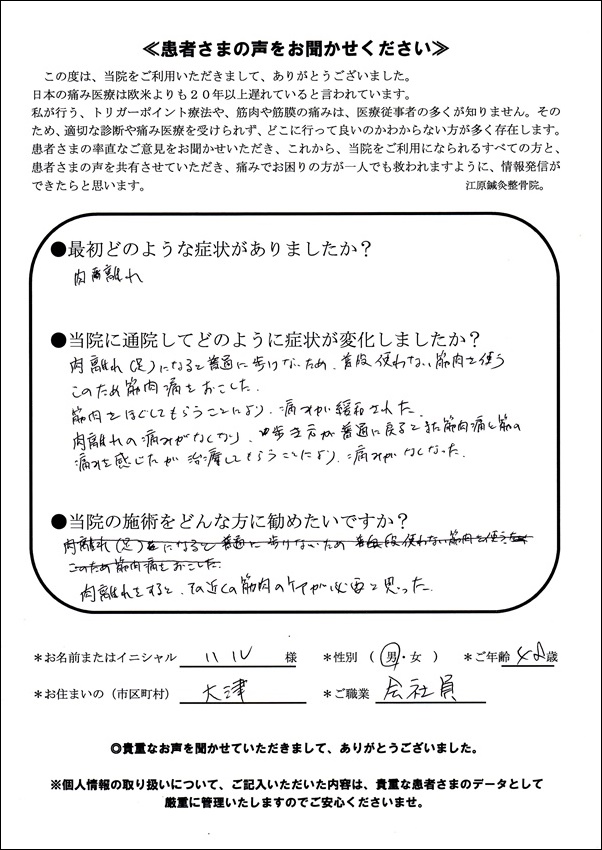 ≪患者さまの声をお聞かせください≫
この度は、当院をご利用いただきまして、ありがとうございました。
日本の痛み医療は欧米よりも２０年以上遅れていると言われています。
私が行う、トリガーポイント療法や、筋肉や筋膜の痛みは、医療従事者の多くが知りません。その
ため、適切な診断や痛み医療を受けられず、どこに行って良いのかわからない方が多く存在します。
患者さまの率直なご意見をお聞かせいただき、これから、当院をご利用になられるすべての方と、
患者さまの声を共有させていただき、痛みでお困りの方が一人でも救われますように、情報発信が
できたらと思います。 江原鍼灸整骨院。
●最初どのような症状がありましたか？
肉離れ
●当院に通院してどのように症状が変化しましたか？
肉離れ（足）になると普通に歩けないため、普段使わない筋肉を使う
このため筋肉痛をおこした。
筋肉をほぐしてもらうことにより、痛みが緩和された。
肉離れの痛みがなくなり、歩き方が普通に戻るとまた筋肉痛と筋の
痛みを感じたが治療してもらうことにより、痛みがなくなった。
●当院の施術をどんな方に勧めたいですか？
肉離れ（足）になると普通に歩けないため 普段使わない筋肉を使うため
このため筋肉痛をおこした。
肉離れをすると、その近くの筋肉のケアが必要と思った。
＊お名前またはイニシャル ハル 様 ＊性別（男・女） ＊ご年齢 48歳
＊お住まいの（市区町村） 大津 ＊ご職業 会社員
◎貴重なお声を聞かせていただきまして、ありがとうございました。
※個人情報の取り扱いについて、ご記入いただいた内容は、貴重な患者さまのデータとして
厳重に管理いたしますのでご安心くださいませ。